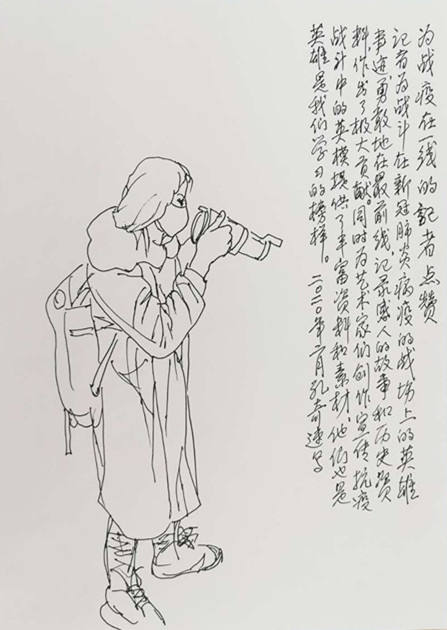 为战疫在一线的记者点赞
记者为战斗在新冠肺炎病疫的战场上的英雄
事迹,勇敢地在最前线记录感人的故事和历史资
料,作出了极大贡献。同时为艺术家们创作宣传抗疫
战斗中的英模提供了丰富资料和素材,他们也是
英雄是我们学习的榜样。二〇二〇年二月孔奇速写